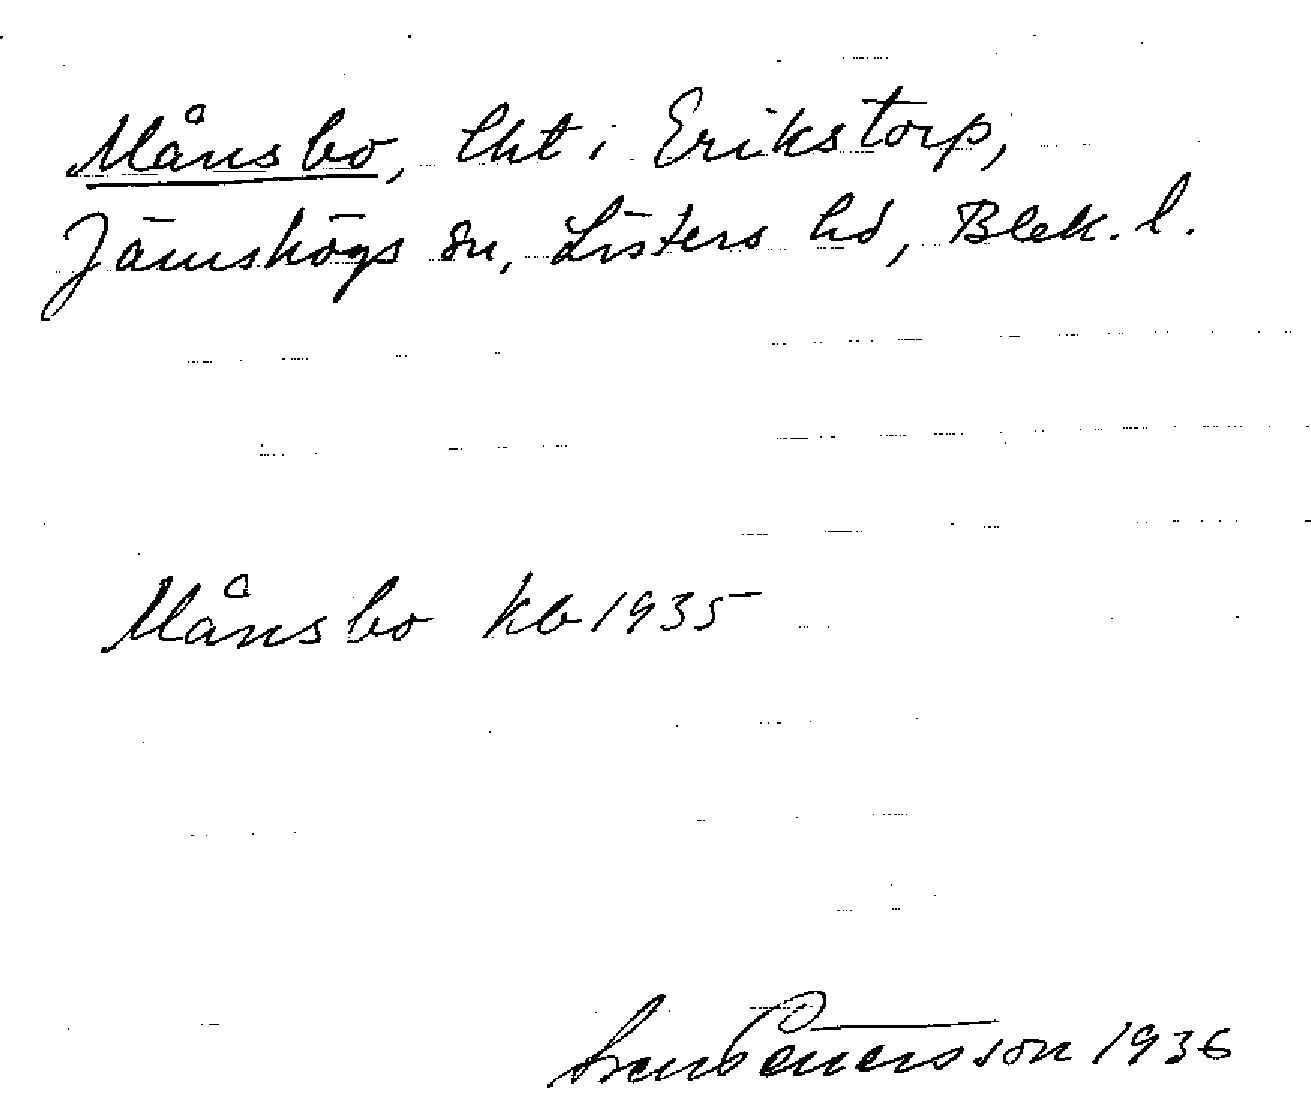 Månsbo, lht i Erikstorp,
Jämshögs sn, Listers hd, Blek. l.
Månsbo kb 1935
Sven Pettersson 1936